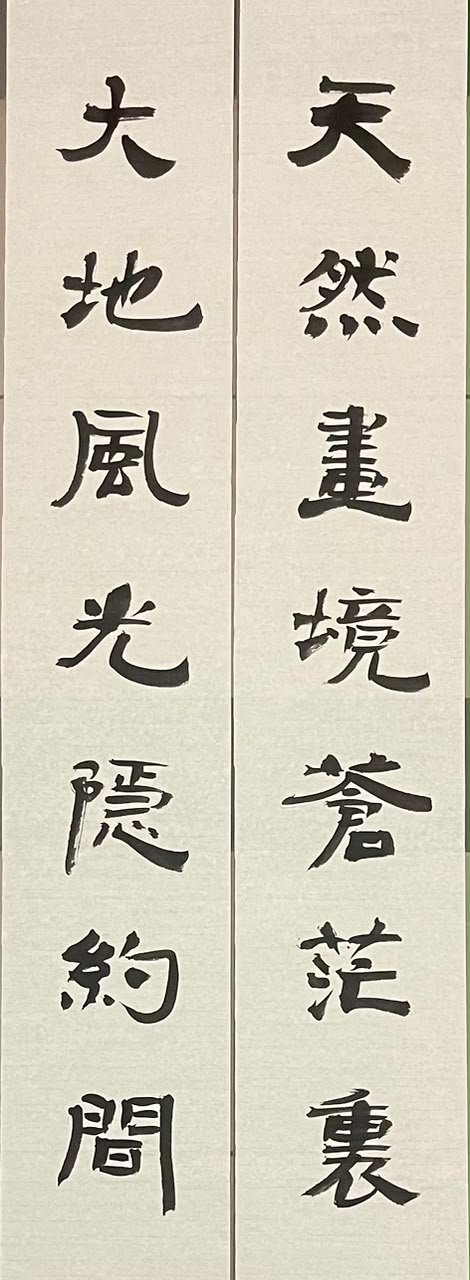 天然畫境蒼茫裏
大地風光隱約間